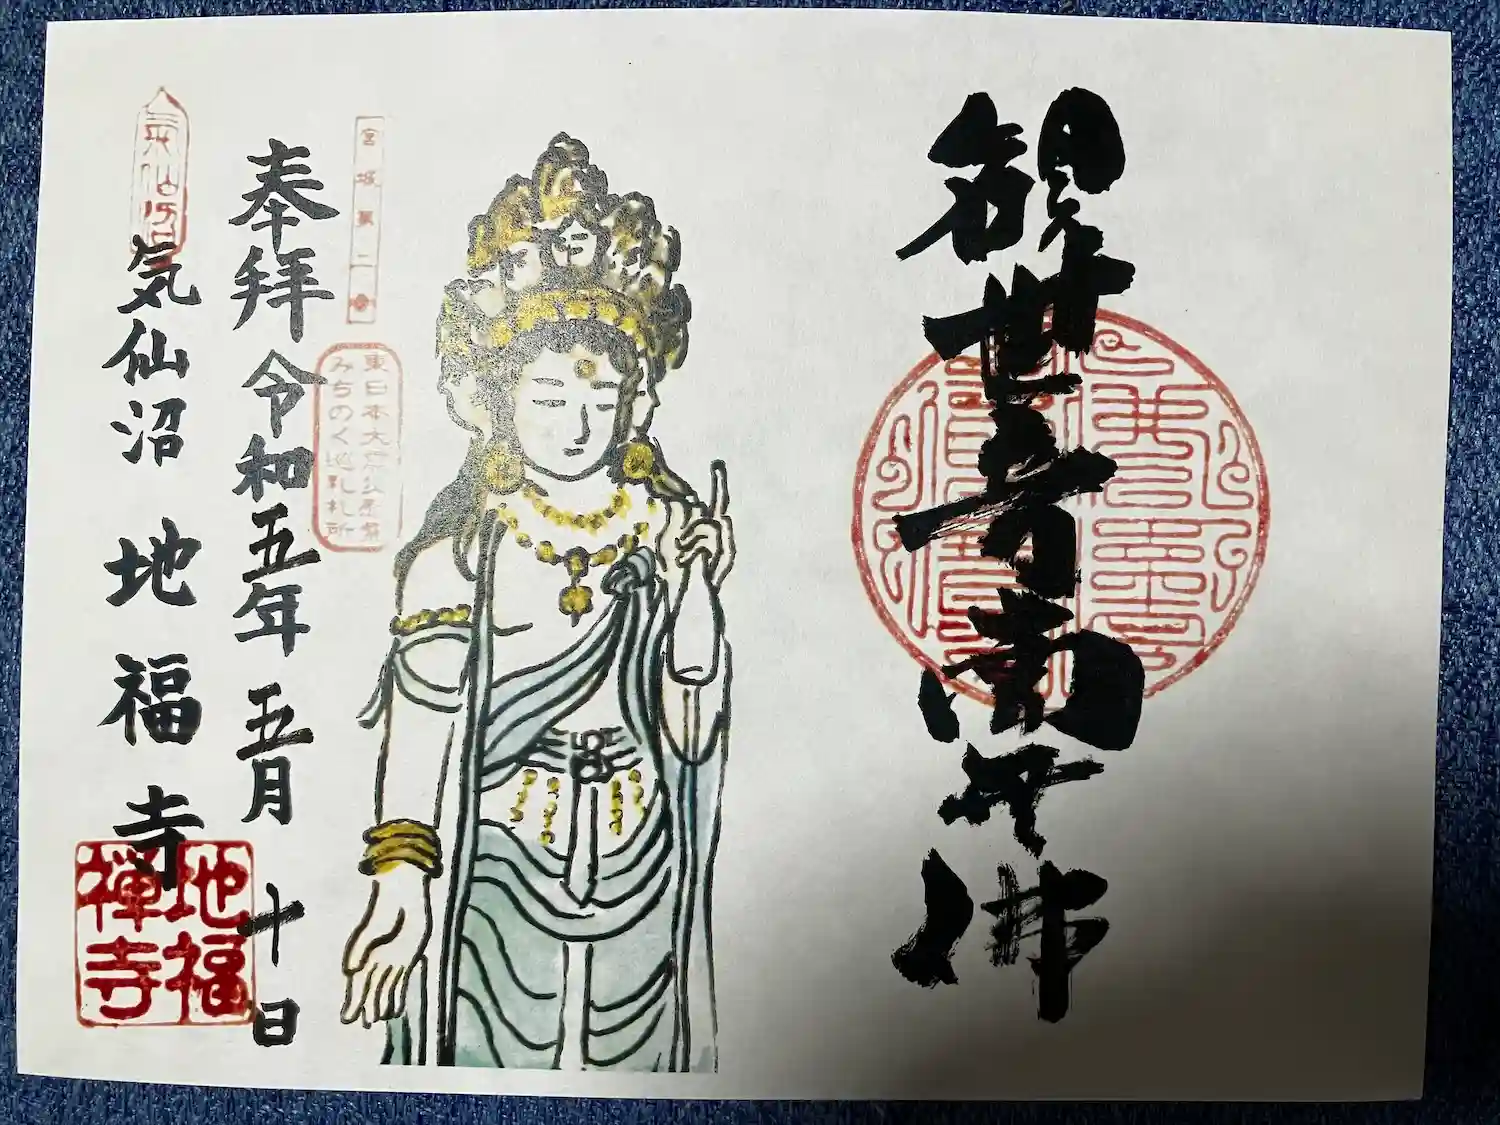 観世音南無佛
宮城第二
東日本大
みちのく巡礼札所
奉拝 令和五年 五月 十日
氣仙沼
気仙沼 地福寺
地福
禅寺